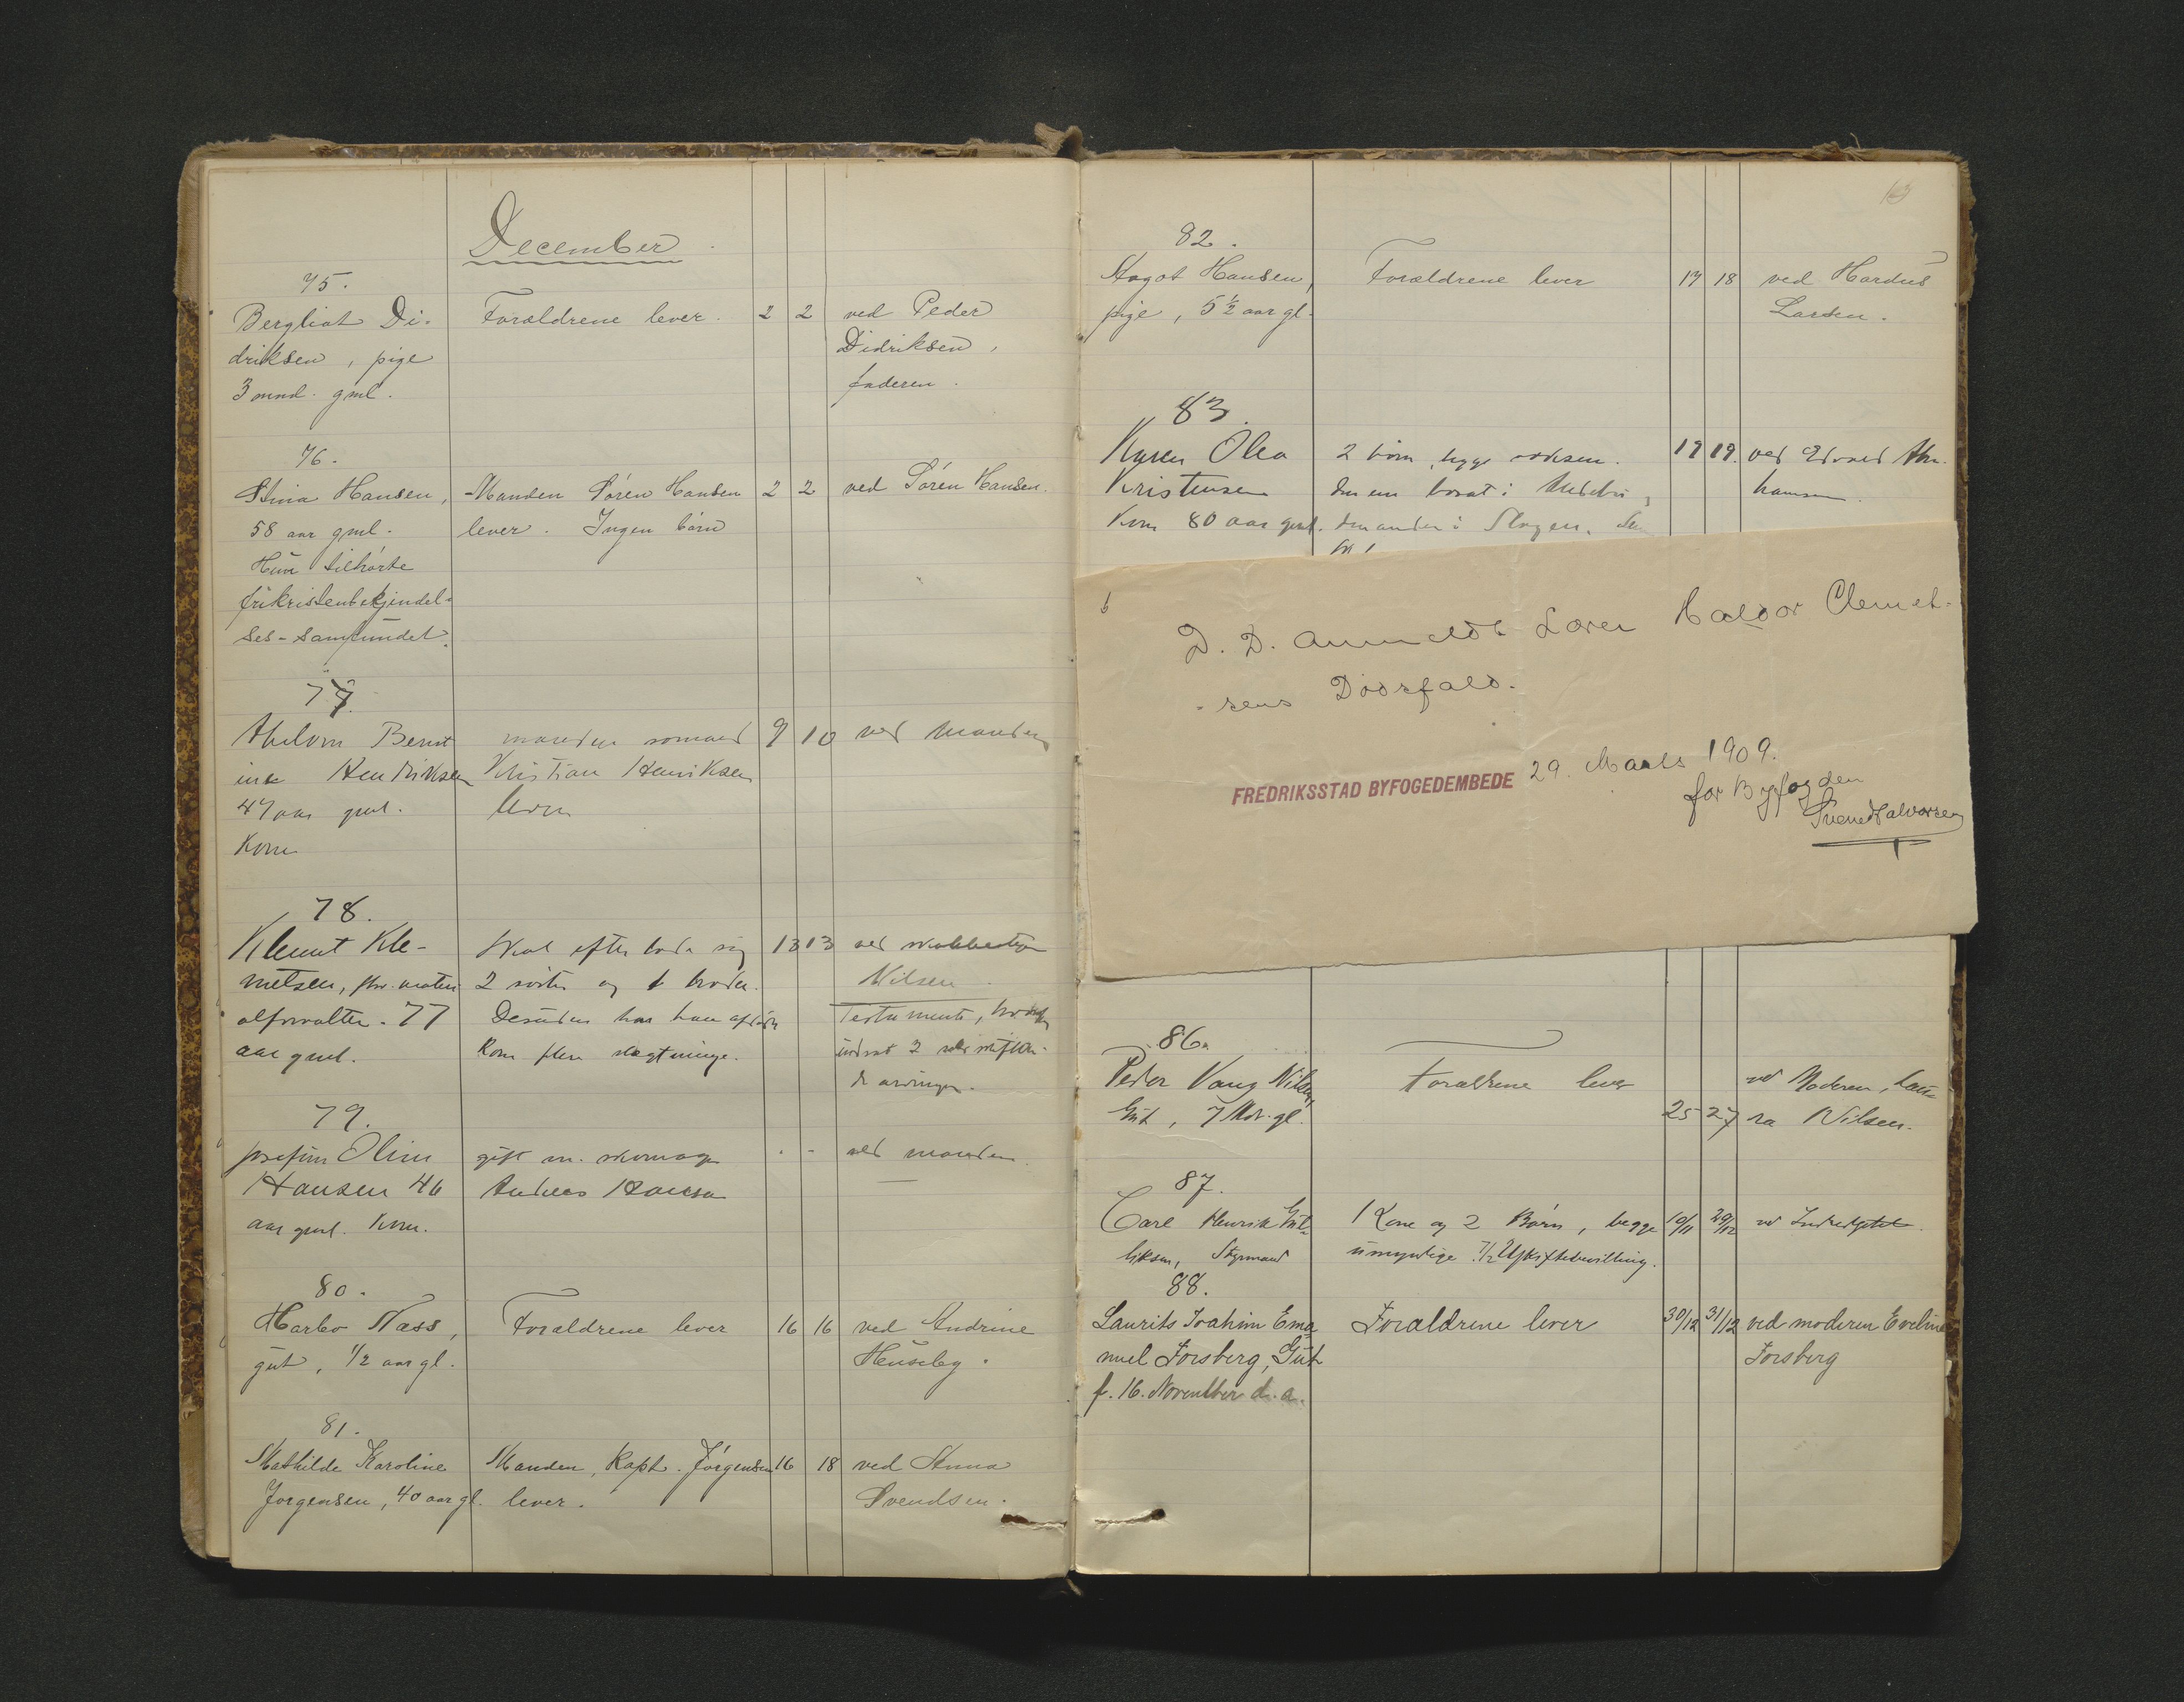 December
75.
Bergliot Di-
driksen, pige
3 mnd. gml.
Forældrene lever.
2 2
ved Peder
Didriksen,
faderen.
76.
Stina Hansen,
58 aar gml.
Hun tilhørte
frikristenbekjendel-
ses-samfundet.
Manden Søren Hansen
lever. Ingen børn
2 2
ved Søren Hansen.
77.
Bernt
ine Hendriksen
47 aar gml.
Kone
manden sømand
Kristian Henriksen
lever
9 10
ved manden
78.
Klemt Kle-
metsen, materi
alforvalter. 77
aar gml.
Skal efterlade sig
2 søstre og 1 broder.
Desuden har han afdøde
kone flere slægtninge.
13 13
ved
Nilsen
Testamente,
79.
Josefine Oline
Hansen 46
aar gml. Kone.
gift m. skomager
Andreas Hansen
" "
ved manden.
80.
Harbo Næss,
gut, 1/2 aar gl.
Forældrene lever
16 16
ved Andrine
Huseby.
81.
Mathilde Karoline
Jørgensen, 40 aar gl.
Manden, Kapt. Jørgensen
lever.
16 18
ved Anna
Svendsen.
82.
Aagot Hansen,
pige, 5 1/2 aar gl.
Forældrene lever
17 18
ved Hardus
Larsen.
83.
Karen Olea
Kristensen
Kone 80 aar gml.
2 børn, begge voksen.
den ene bosat i
den anden i Slagen.
19 19.
ved Edvard Abra
hamsen.
D. D. anmeldt Lærer Haldor Clemet-
-sens Dødsfald.
FREDRIKSSTAD BYFOGEDEMBEDE 29. Marts 1909.
for Byfogden
Halvorsen
86.
Peder Vang Nilsen,
Gut, 7 Mdr. gl.
Forældrene lever
25 27
ved Moderen, Lau-
ra Nilsen.
87.
Carl Henrik
Styrmand
1 Kone og 2 Børn, begge
umyndige. 7/2 Uskiftebevilling.
19/11 29/12
88.
Laurits Joahim Ema
nuel Forsberg, Gut
f. 16. November d. a.
Forældrene lever
30/12 31/12
ved moderen Eveline
Forsberg